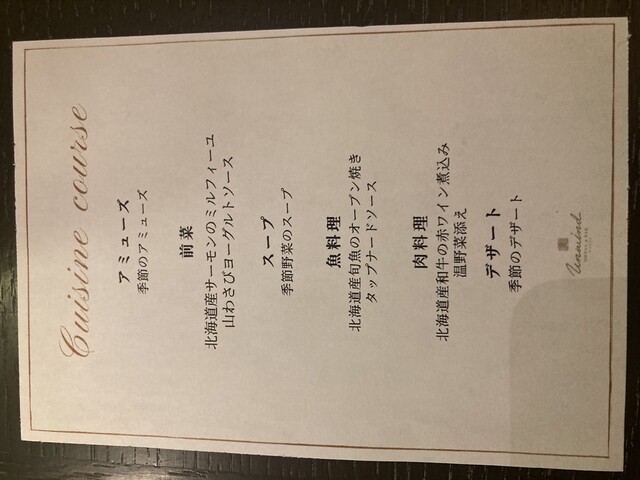 Cuisine course
アミューズ
季節のアミューズ
前菜
北海道産サーモンのミルフィーユ
山わさびヨーグルトソース
スープ
季節野菜のスープ
魚料理
北海道産旬魚のオーブン焼き
タップナードソース
肉料理
北海道産和牛の赤ワイン煮込み
温野菜添え
デザート
季節のデザート
Unwind